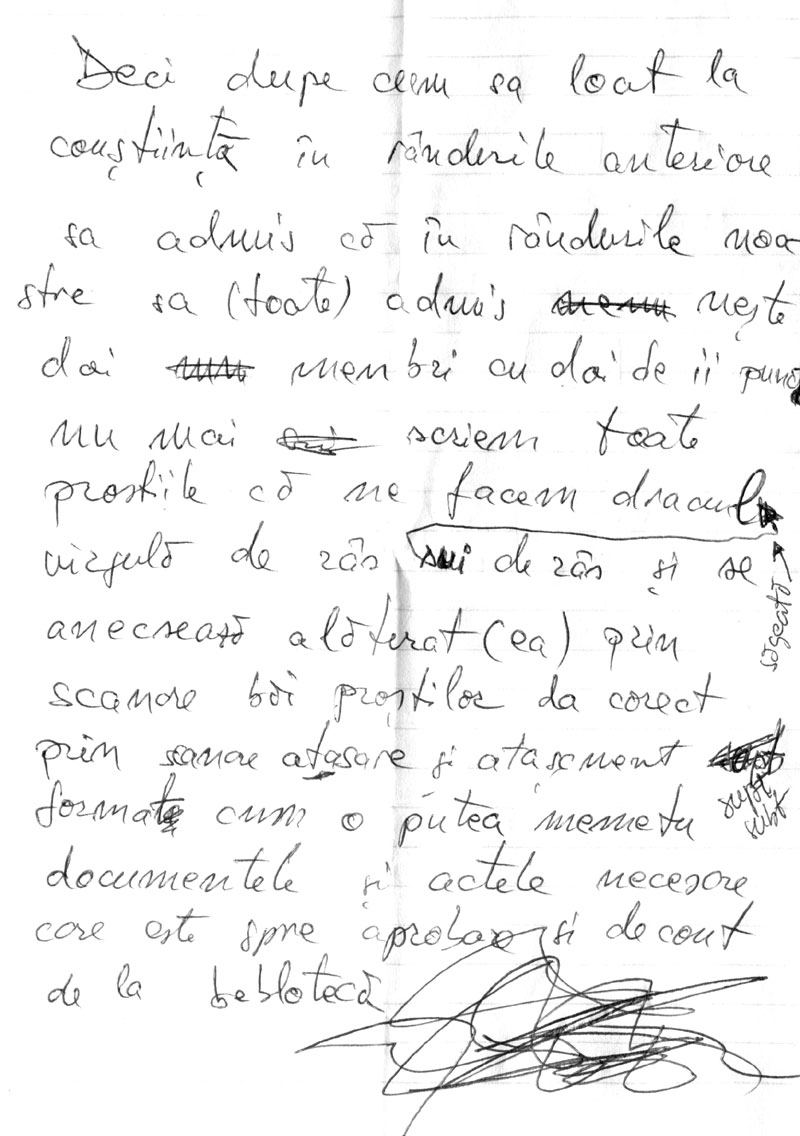 Deci dupe cum sa loat la
conștiință în rânderile anteriore
sa admis că în rânderile noa
stre sa (toate) admis nește
doi membri cu doi de ii punc
nu mai scriem toate
prostiile că ne facem dracul
virgulă de râs de râs și se
săgeată
anecsează alăterat (ea) prin
scanare băi proștilor da corect
prin scanare atașare și atașment
supt
subt
format cum o putea memetu
documentele și actele necesare
care este spre aprobare si decont
de la beblotecă